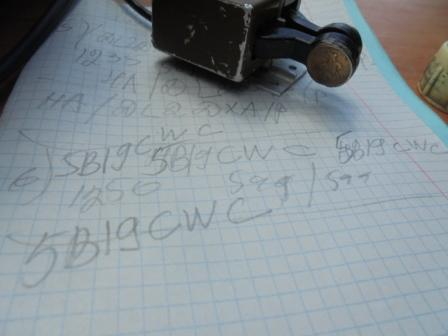 1235
HA/@L2@XA/P
CWC
6) 5B19CWC 5B19CWC 5B19CWC
1250 599/599
5B19CWC